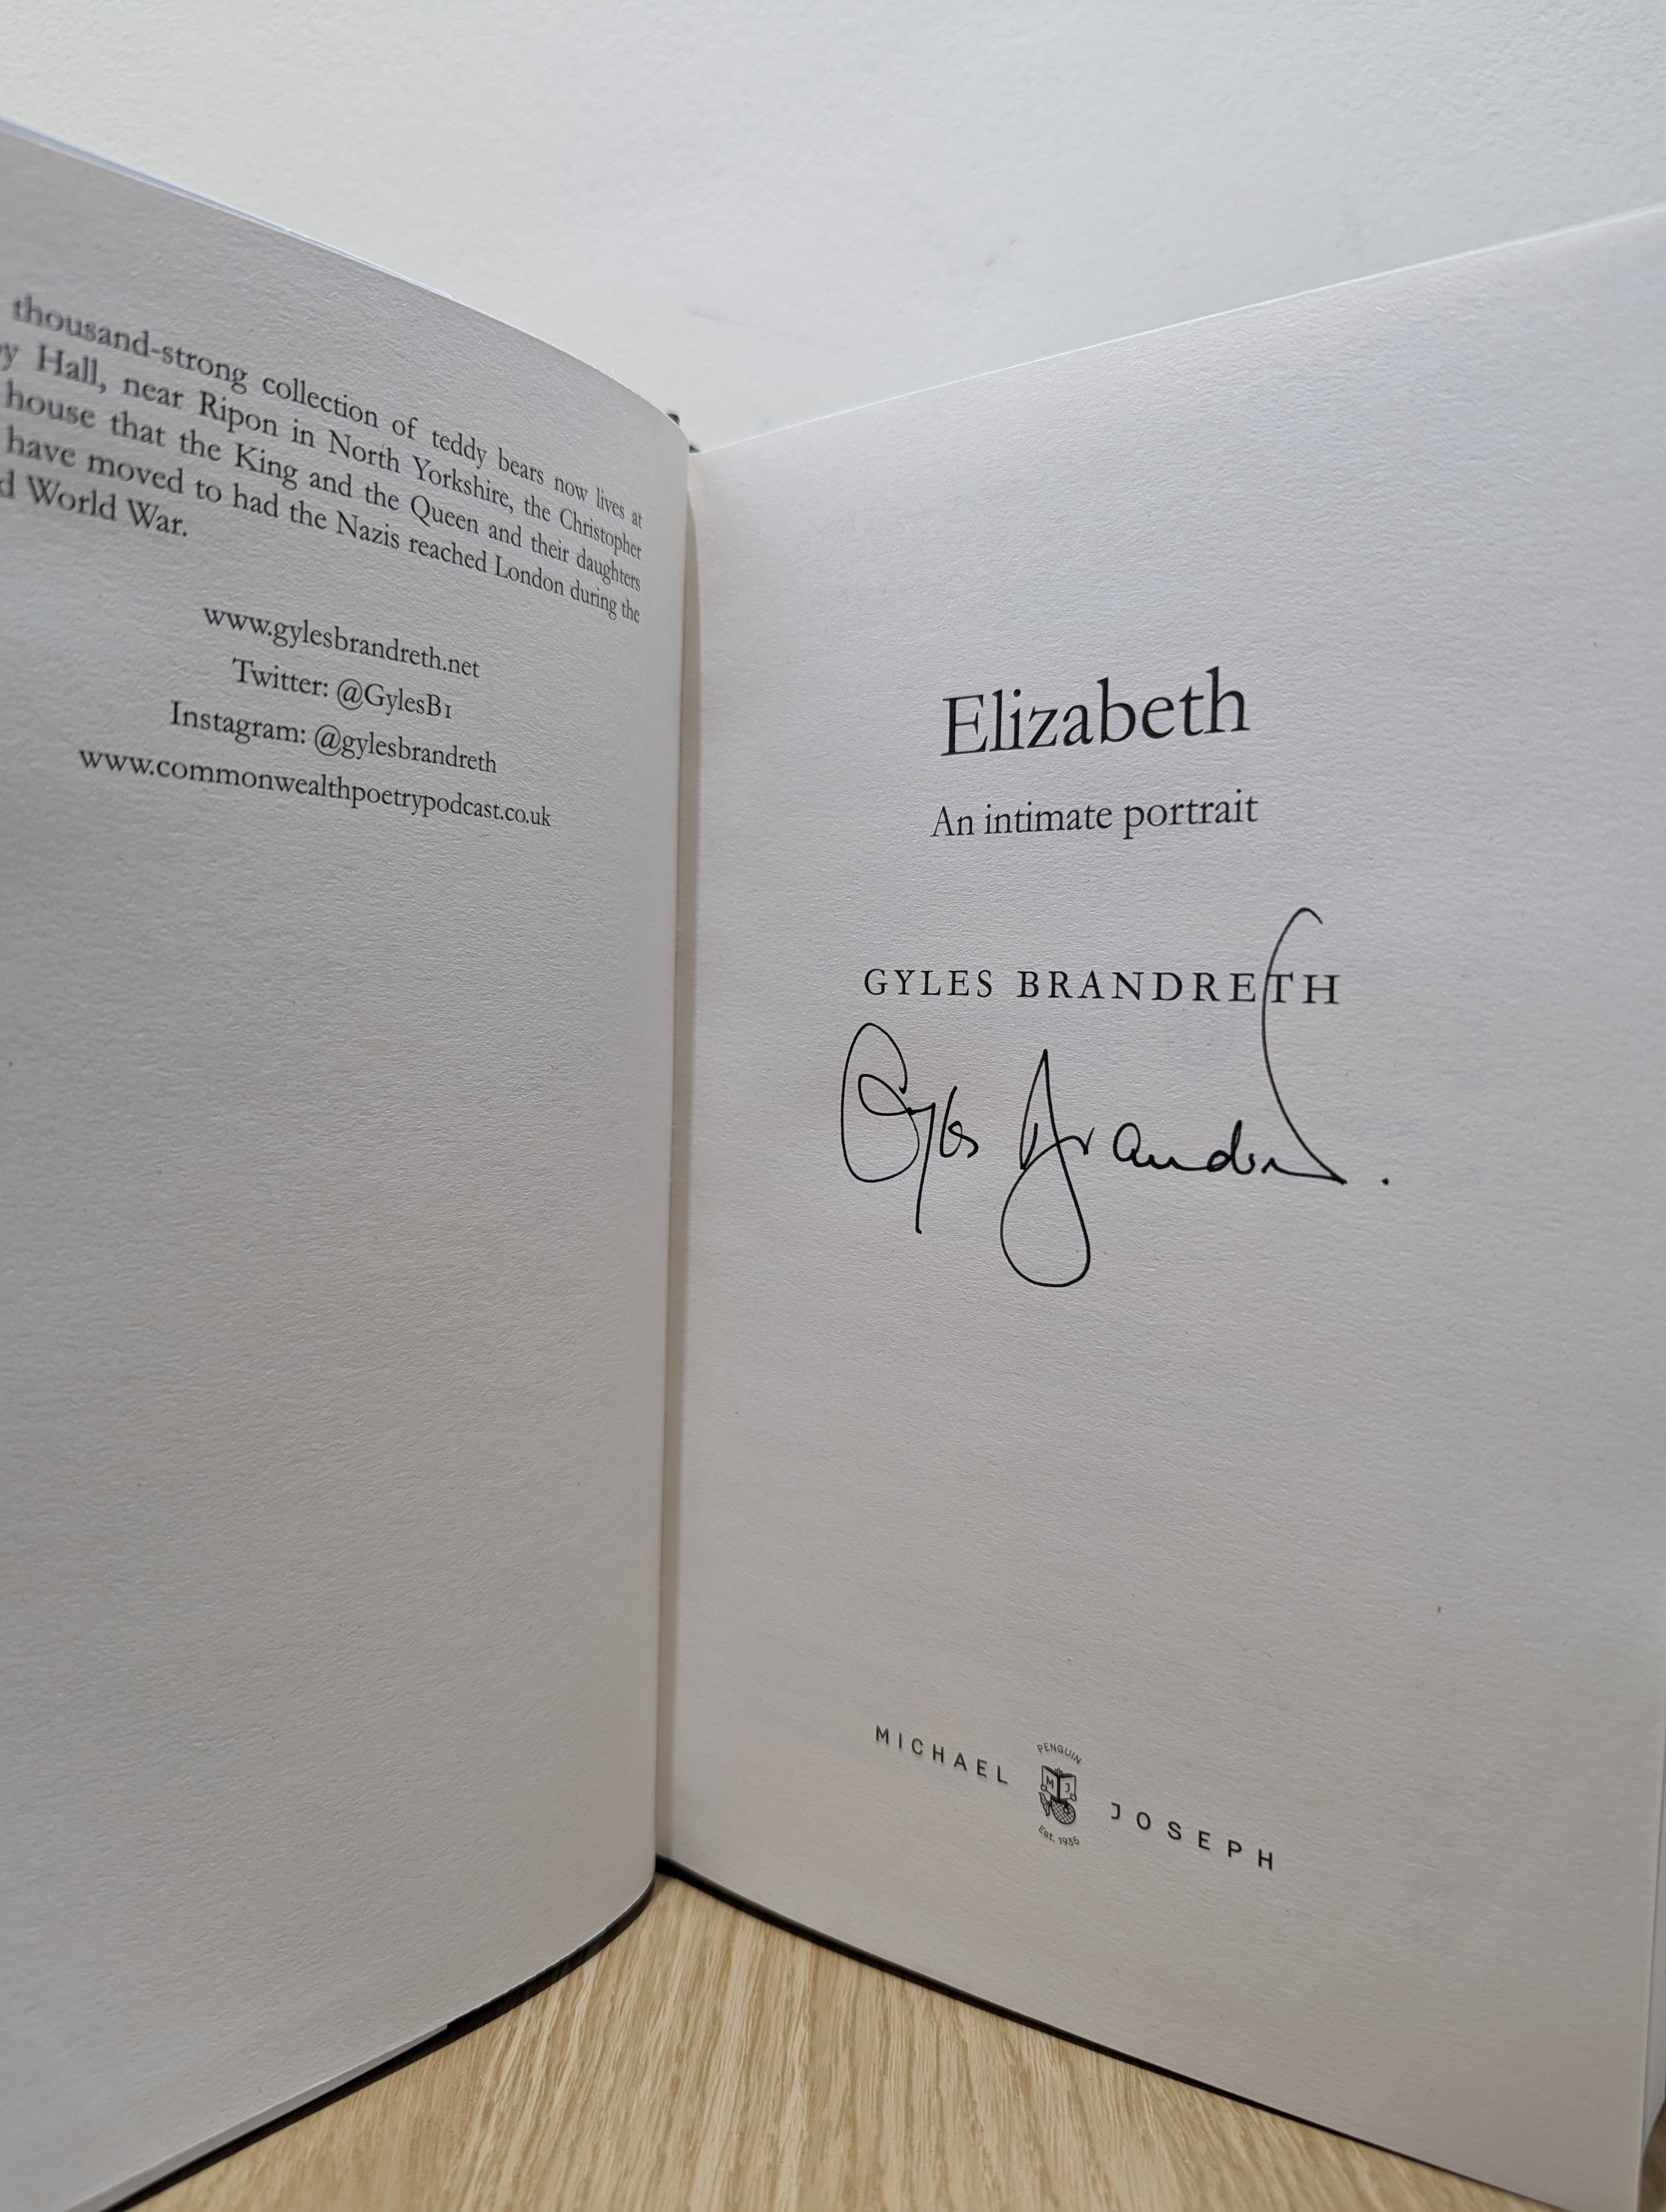 thousand-strong collection of teddy bears now lives at
Hall, near Ripon in North Yorkshire, the Christopher
house that the King and the Queen and their daughters
have moved to had the Nazis reached London during the
World War.
www.gylesbrandreth.net
Twitter: @GylesB1
Instagram: @gylesbrandreth
www.commonwealthpoetrypodcast.co.uk
Elizabeth
An intimate portrait
GYLES BRANDRETH
Gyles Brandreth.
MICHAEL JOSEPH
PENGUIN
M J
Est. 1935